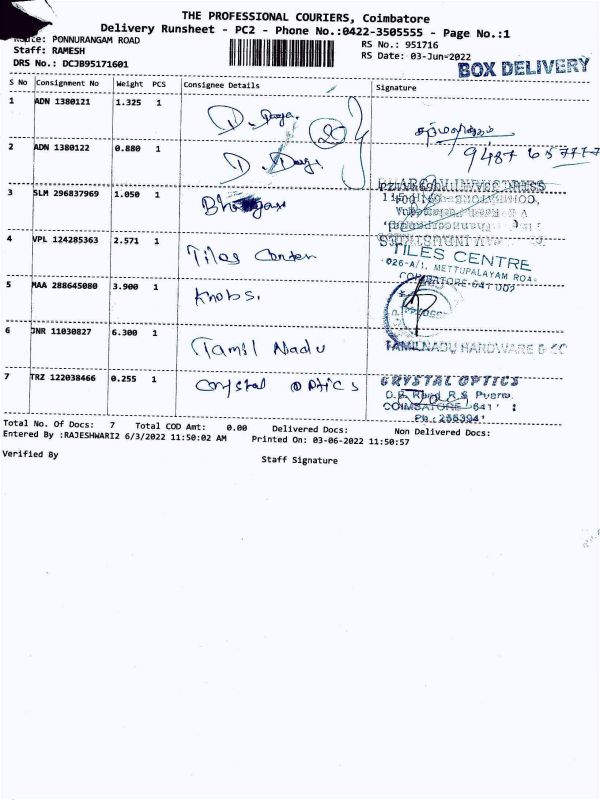 THE PROFESSIONAL COURIERS, Coimbatore
Delivery Runsheet - PC2 - Phone No.:0422-3505555 - Page No.:1
Route: PONNURANGAM ROAD
RS No.: 951716
Staff: RAMESH
RS Date: 03-Jun-2022
DRS No.: DCJB95171601
BOX DELIVERY
S No Consignment No Weight PCS Consignee Details Signature
1 ADN 1380121 1.325 1
20
2 ADN 1380122 0.880 1
3 SLM 296837969 1.050 1
4 VPL 124285363 2.571 1 Tiles Center
TILES CENTRE
026-A/1, METTUPALAYAM ROA
COIMBATORE-641 002
5 MAA 288645080 3.900 1 Knobs.
6 JNR 11030827 6.300 1 Tamil Nadu
TAMILNADU HARDWARE &
7 TRZ 122038466 0.255 1 Crystal Optics
CRYSTAL OPTICS
COIMBATORE 641
Total No. Of Docs: 7 Total COD Amt: 0.00 Delivered Docs: Non Delivered Docs:
Entered By :RAJESHWARI2 6/3/2022 11:50:02 AM Printed On: 03-06-2022 11:50:57
Verified By
Staff Signature